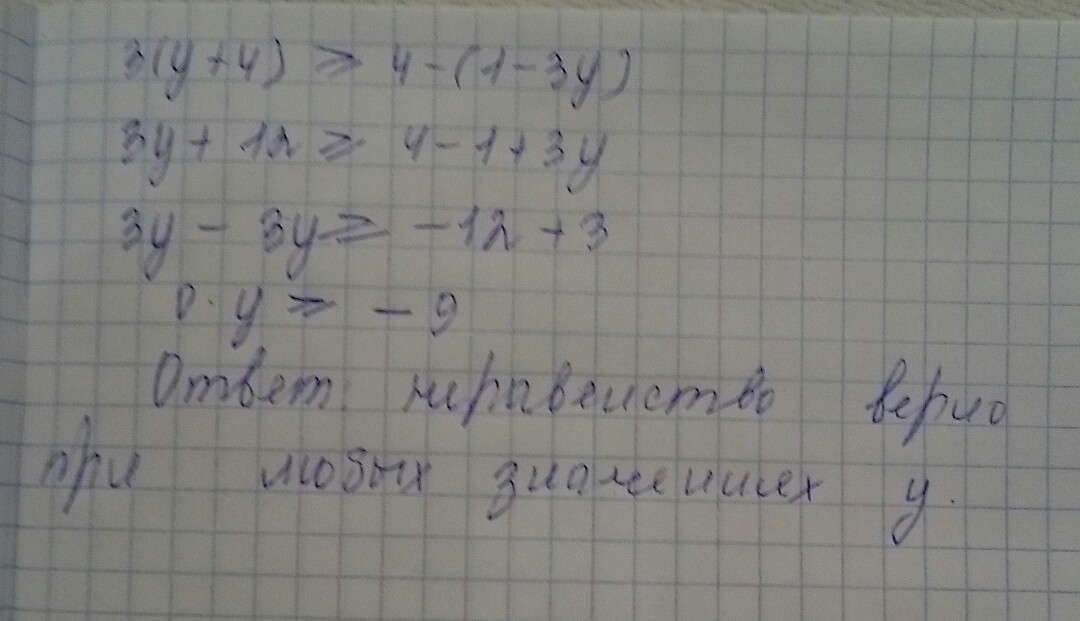 3(y+4) ⩾ 4-(1-3y)
3y + 12 ⩾ 4-1+3y
3y - 3y ⩾ -12 + 3
0·y ⩾ -9
Ответ: неравенство верно
при любых значениях y.